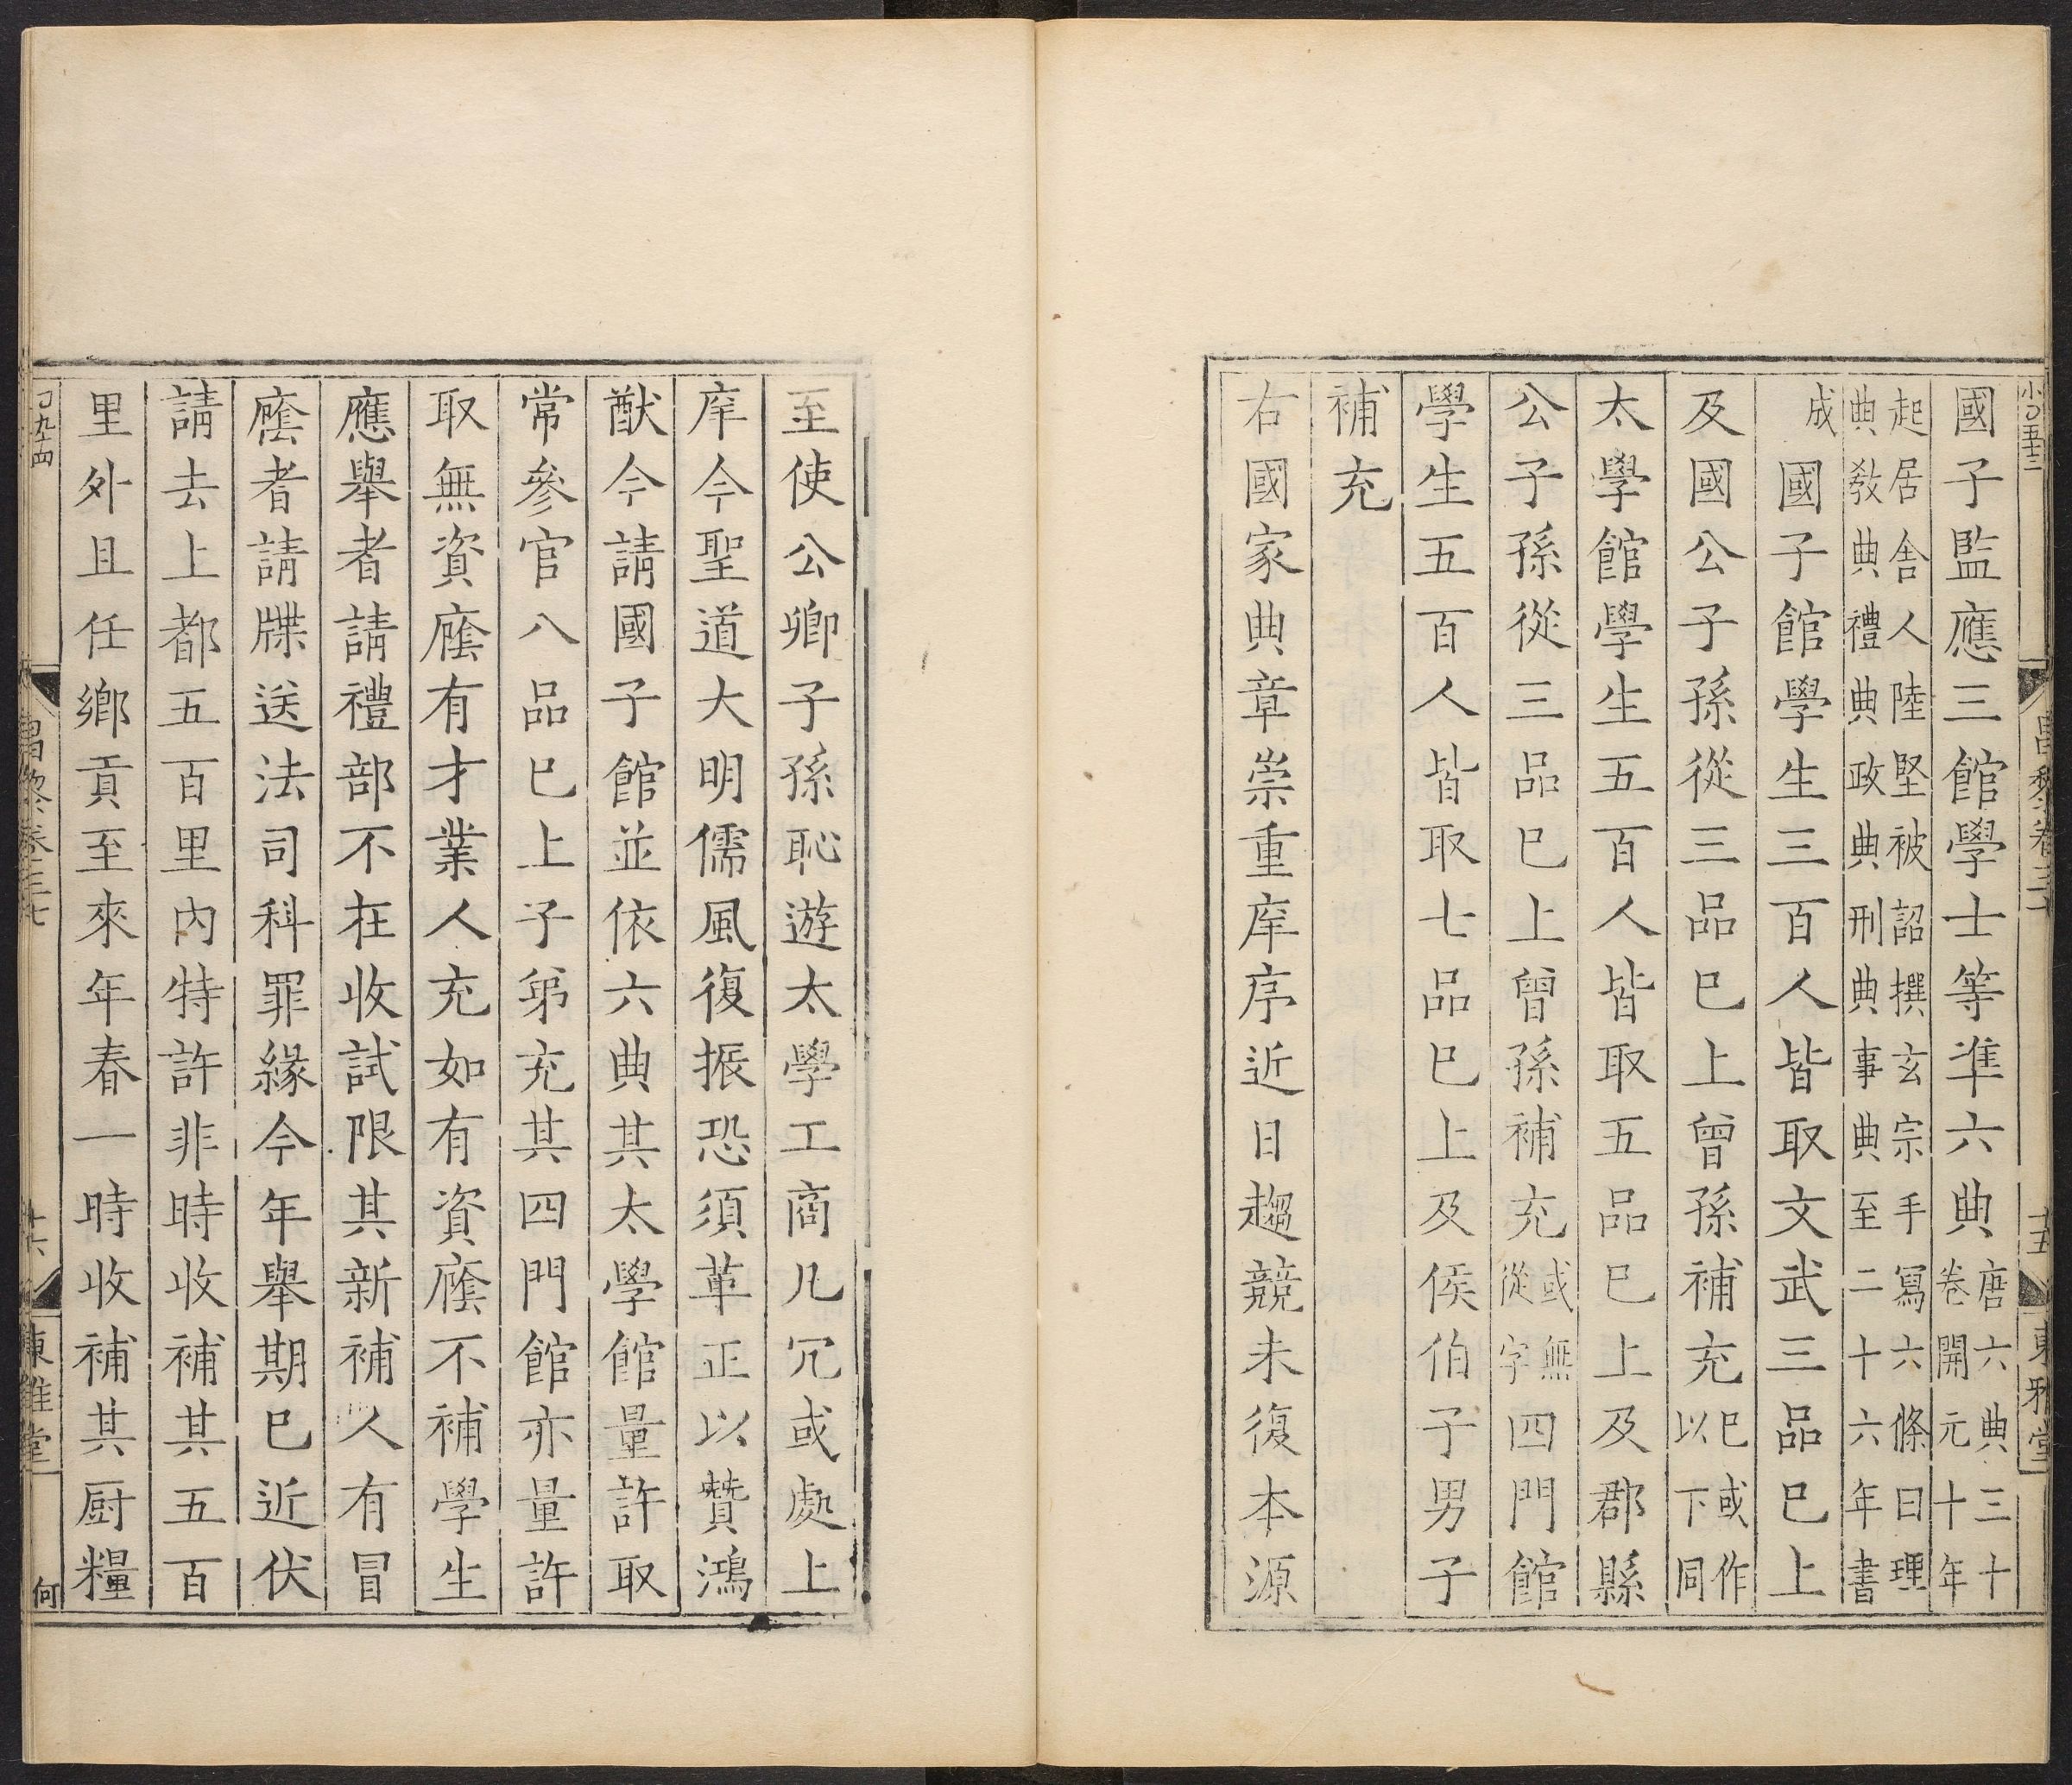 國子監應三館學士等準六典唐六典三十卷開元十年
起居舍人陸堅被詔撰玄宗手寫六條曰理典教典禮典政典刑典事典至二十六年書
成國子館學生三百人皆取文武三品巳上
及國公子孫從三品巳上曾孫補充巳或作以下同
太學館學生五百人皆取五品巳上及郡縣
公子孫從三品巳上曾孫補充或無從字四門館
學生五百人皆取七品巳上及侯伯子男子
補充
右國家典章崇重庠序近日趨競未復本源
至使公卿子孫恥遊太學工商凡冗或處上
庠今聖道大明儒風復振恐須革正以贊鴻
猷今請國子館並依六典其太學館量許取
常參官八品巳上子弟充其四門館亦量許
取無資廕有才業人充如有資廕不補學生
應舉者請禮部不在收試限其新補人有冒
廕者請牒送法司科罪緣今年舉期巳近伏
請去上都五百里內特許非時收補其五百
里外且任鄉貢至來年春一時收補其厨糧
昌黎卷三十七
十六
東雅堂
何